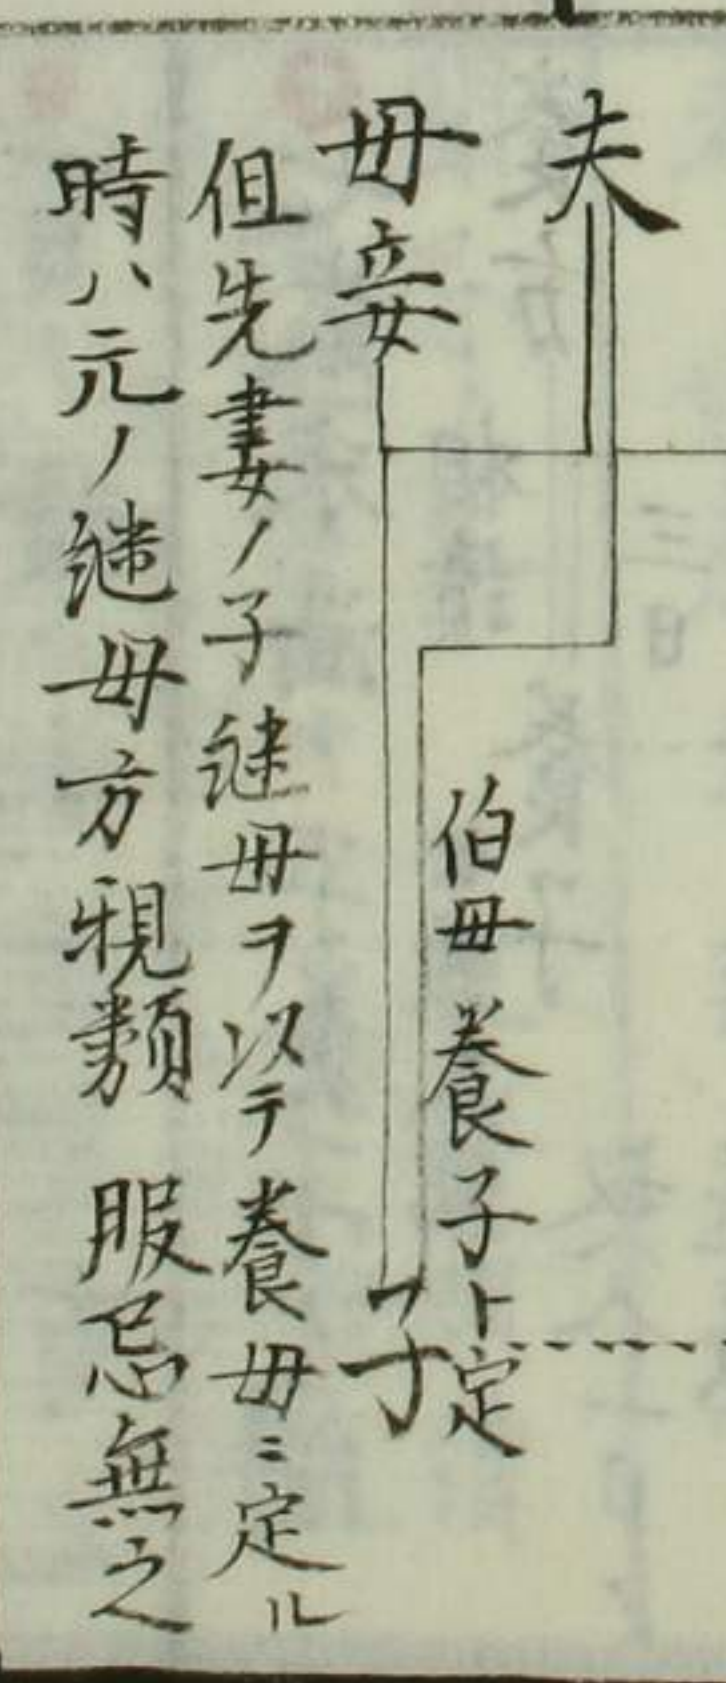 夫
伯母養子ト定
子
母妾
但先妻ノ子継母ヲ以テ養母ニ定ル
時ハ元ノ継母方親類 服忌無之